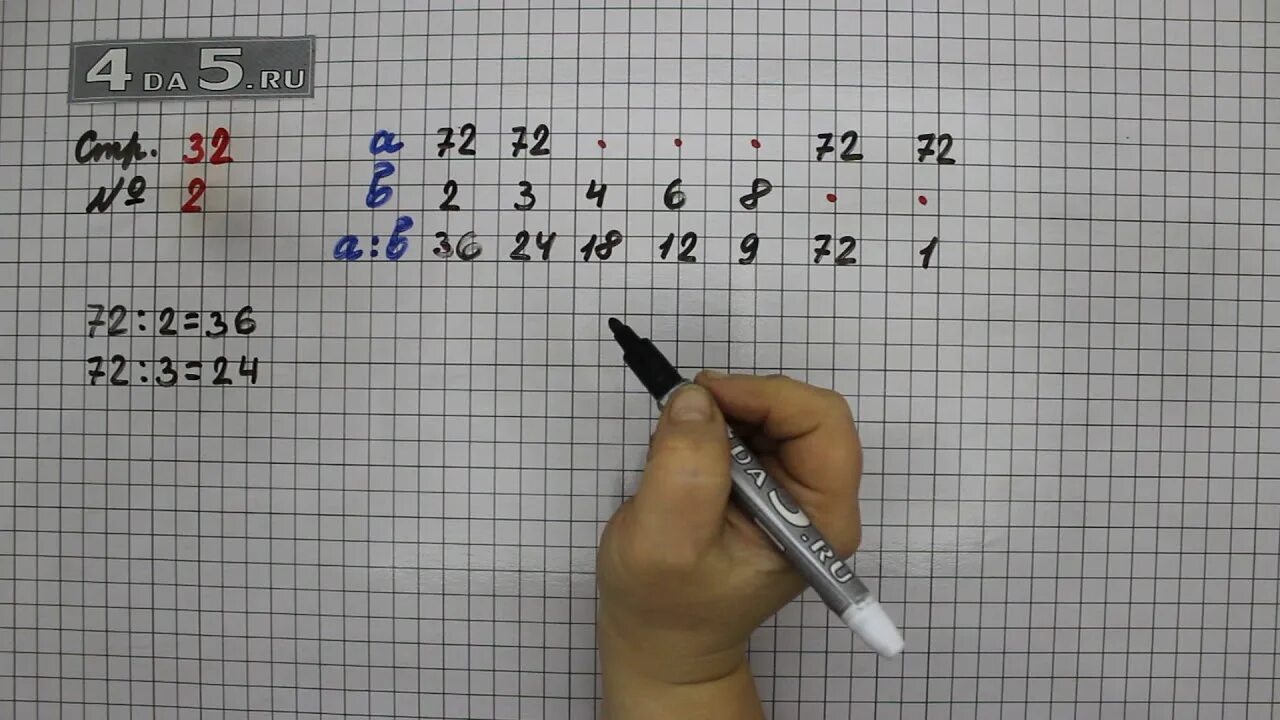 4DA5.RU
Стр. 32
№ 2
a 72 72 . . . 72 72
b 2 3 4 6 8 . .
a:b 36 24 18 12 9 72 1
72:2=36
72:3=24
DA5.RU